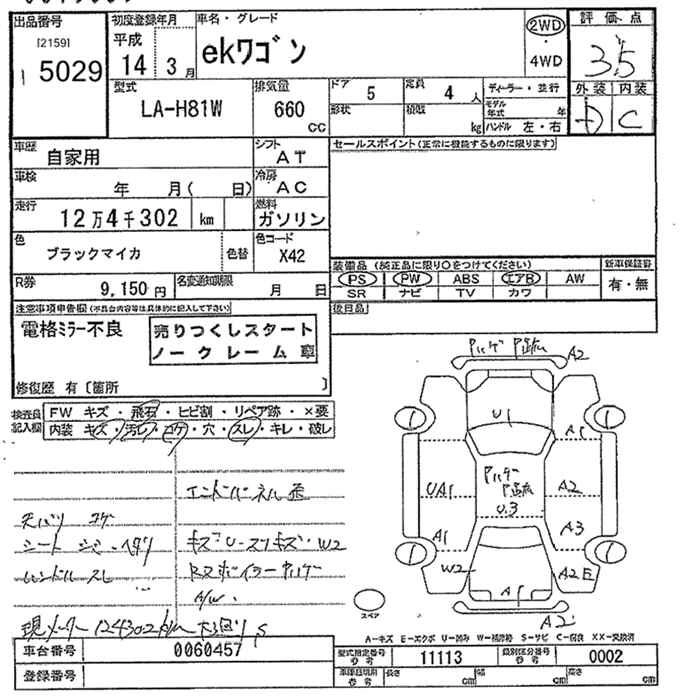 出品番号 初度登録年月 車名・グレード 2WD 評価点
[2159] 平成 ekワゴン ・ 3.5
5029 14 3月 4WD
外装 内装
型式 排気量 ドア 5 定員 4人 ディーラー・並行
LA-H81W 660 CC 形状 積載 kg モデル年式 年 D C
ハンドル 左・右
車歴 自家用 シフト AT セールスポイント(正常に機能するものに限ります)
車検 年 月( 日) 冷房 AC
走行 12万4千302 km 燃料 ガソリン
色 ブラックマイカ 色替 色コード X42
装備品(純正品に限り○をつけてください) 新車保証書
R券 9,150円 名変通知期限 月 日 PS PW ABS エアB AW 有・無
SR ナビ TV カワ
注意事項申告欄(不具合内容等は具体的に記入して下さい) 後日品
電格ミラー不良 売りつくしスタート
ノークレーム車
修復歴 有〔箇所 〕
検査員 FW キズ・飛石・ヒビ割・リペア跡・×要
記入欄 内装 キズ・汚レ・コゲ・穴・スレ・キレ・破レ
A2
U1
A1
UA1 U.3 A2
A1 A3
W2 A1 A2E
スペア
A2
天バリ コゲ
シート シミ・ヘタリ
ハンドル スレ
A/W
現メーター 124302km
A-キズ E-エクボ U-凹み W-補修跡 S-サビ C-腐食 XX-交換済
車台番号 0060457 型式指定番号 参考 11113 類別区分番号 参考 0002
登録番号 車庫証明用 参考 長さ cm 幅 cm 高さ cm